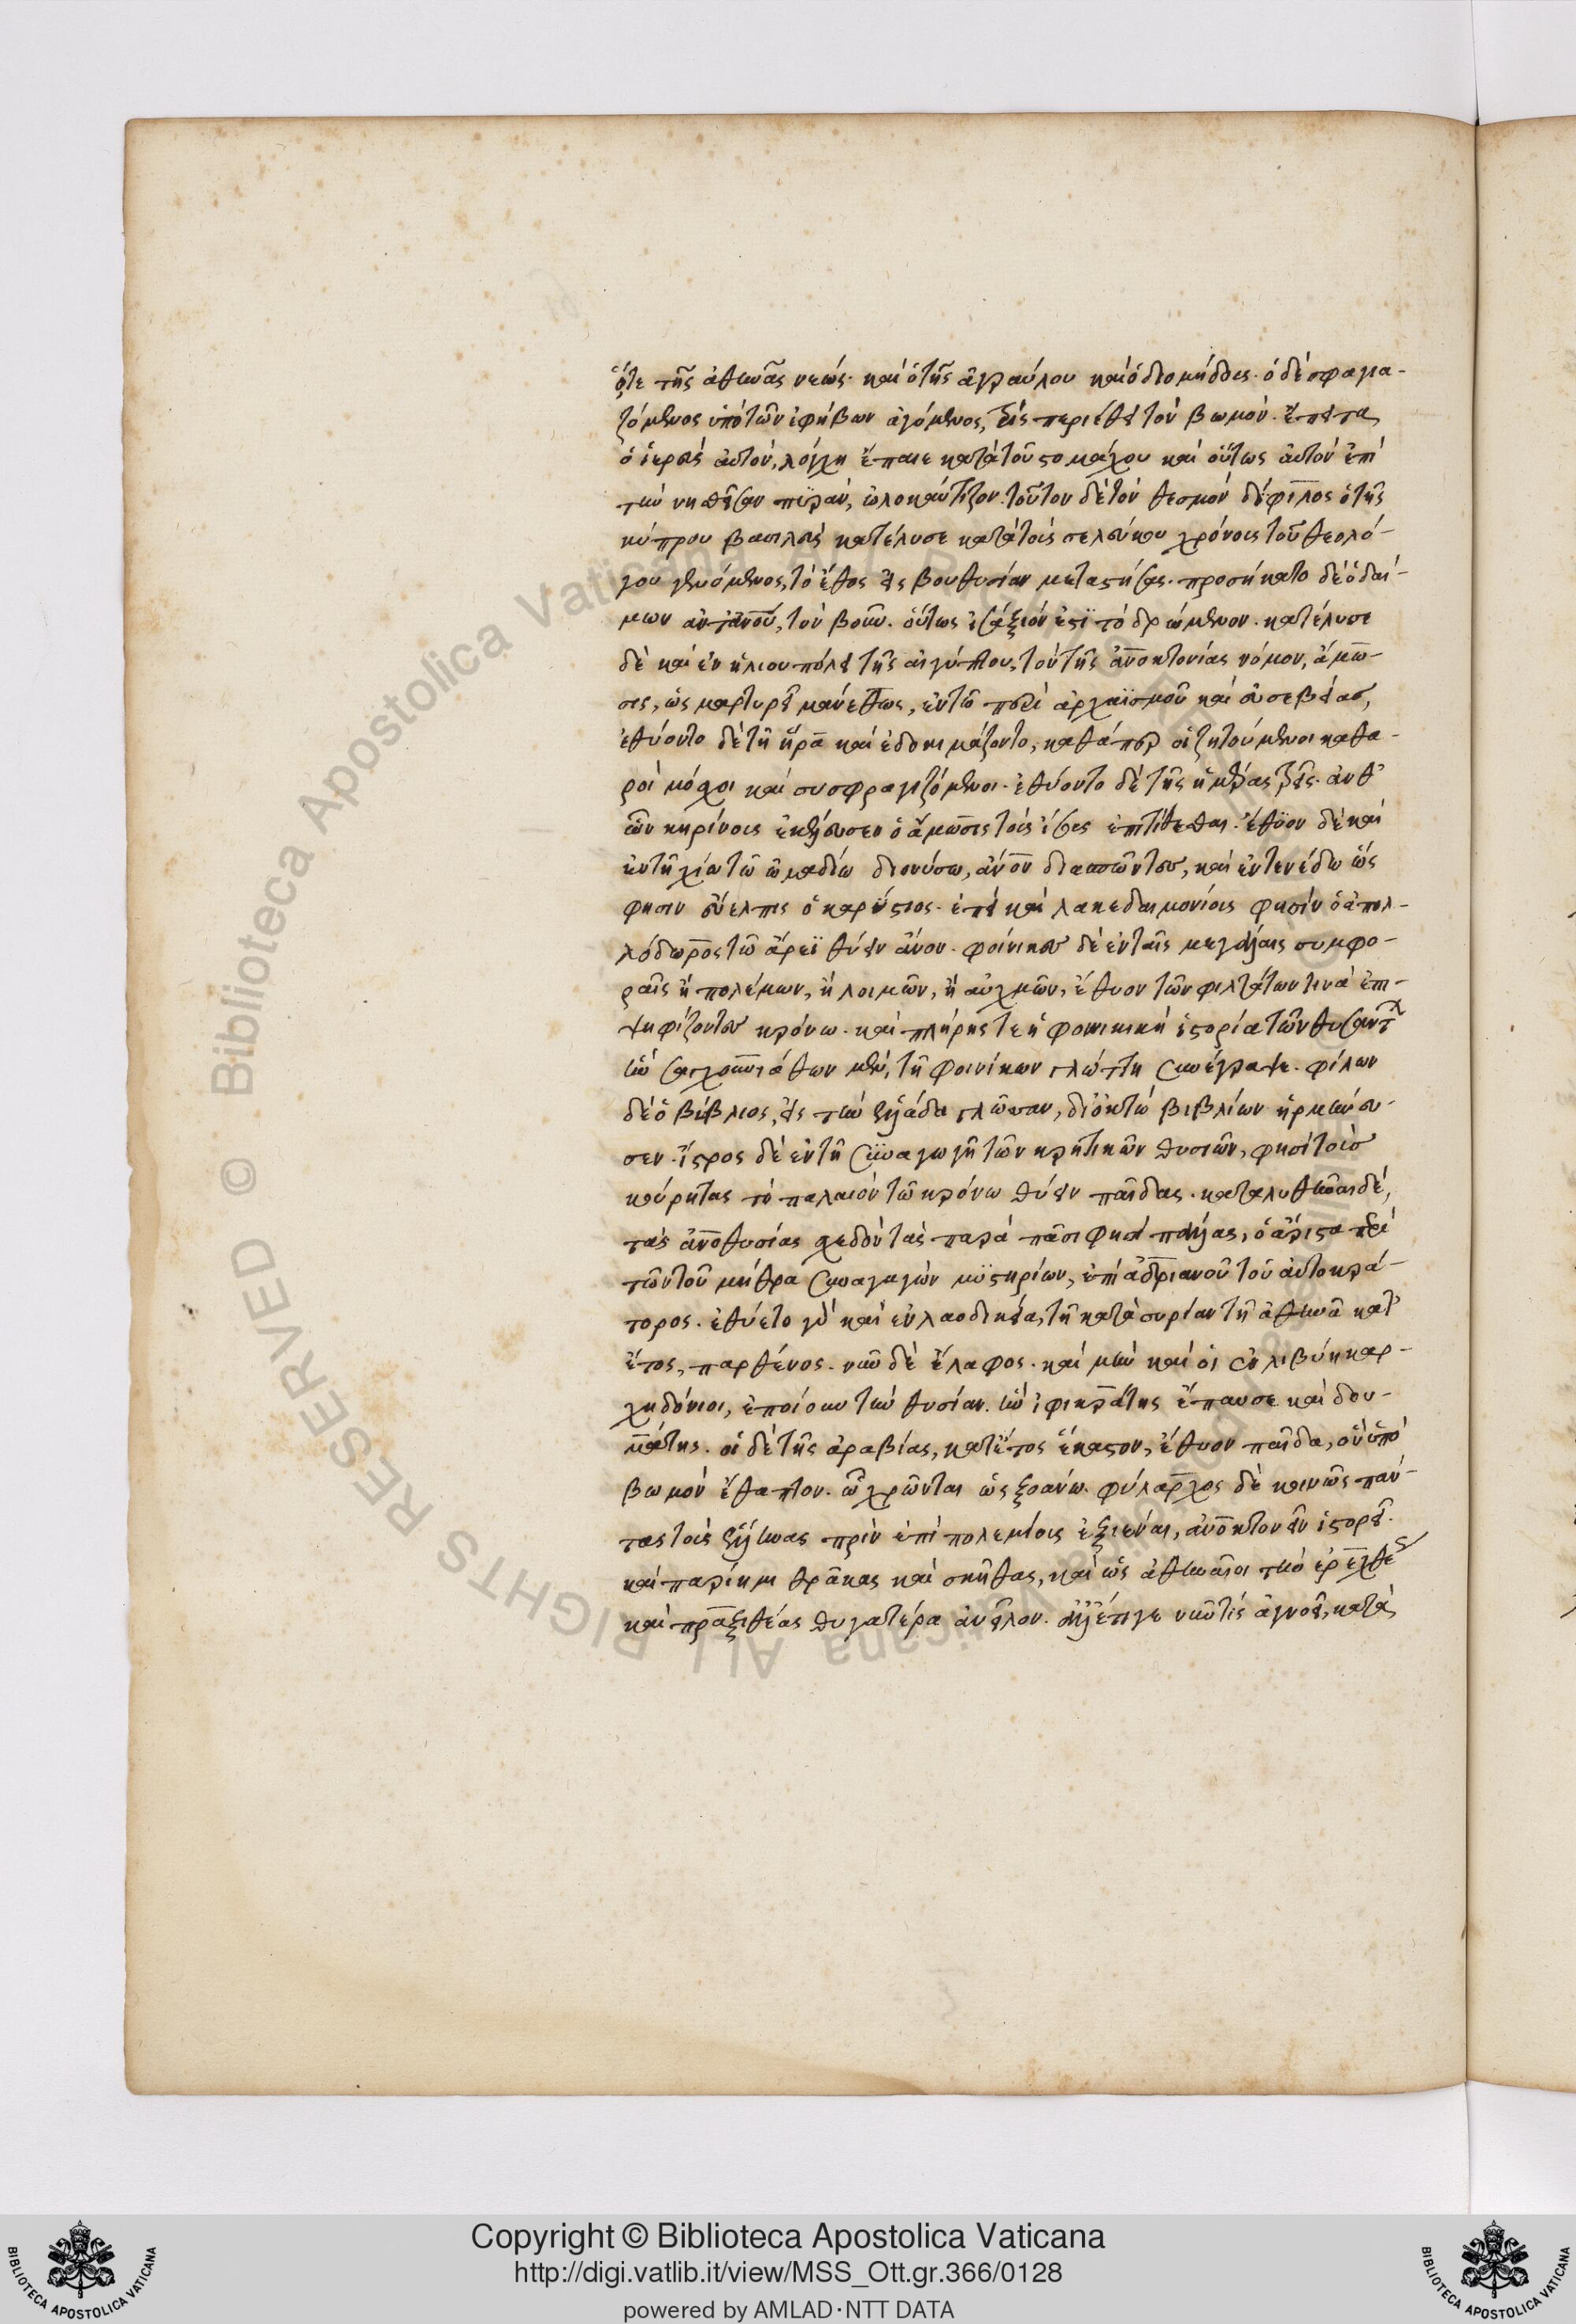 ὅτε τῆς ἀθηνᾶς νεώς· καὶ ὁ τῆς ἀγραύλου καὶ ὁ διομήδους· ὁ δὲ σφαγια-
ζόμενος ὑπὸ τῶν ἐφήβων ἀγόμενος, τρὶς περιέθει τὸν βωμόν· ἔπειτα
ὁ ἱερεὺς αὐτὸν, λόγχῃ ἔπαιε κατὰ τοῦ στομάχου καὶ οὕτως αὐτὸν ἐπὶ
τὴν νησθεῖσαν πϋρὰν, ὡλοκαύτιζον· τοῦτον δὲ τὸν θεσμὸν δίφιλος ὁ τῆς
κύπρου βασιλεὺς κατέλυσε κατὰ τοὺς σελεύκου χρόνους τοῦ θεολό-
γου γενόμενος, τὸ ἔθος εἰς βουθυσίαν μεταστήσας· προσήκατο δὲ ὁ δαί-
μων ἀντ' ἀνοῦ, τὸν βοῦν· οὕτως ἰσάξιόν ἐστϊ τὸ δρώμενον· κατέλυσε
δὲ καὶ ἐν ἡλιουπόλει τῆς αἰγύπτου, τὸν τῆς ἀνοκτονίας νόμον, ἄμω-
σις, ὡς μαρτυρεῖ μανέθως, ἐν τῶ περὶ ἀρχαϊσμοῦ καὶ εὐσεβείας,
ἐθύοντο δὲ τῆ ἥρα καὶ ἐδοκιμάζοντο, καθάπερ οἱ ζητούμενοι καθα-
ροὶ μόσχοι καὶ συσφραγιζόμενοι· ἐθύοντο δὲ τῆς ἡμέρας τρεῖς· ἀνθ'
ὧν κηρίνους ἐκέλευσεν ὁ ἄμωσις τοὺς ἴσους ἐπιτίθεσθαι· ἔθϋον δὲ καὶ
ἐν τῆ χίω τῶ ὠμαδίω διονύσω, ἄνον διασπῶντες, καὶ ἐν τενέδω ὥς
φησιν εὔελπις ὁ καρύστιος· ἐπεὶ καὶ λακεδαιμονίους φησὶν ὁ ἀπολ-
λόδωρος τῶ ἄρεϊ θύειν ἄνον· φοίνικες δὲ ἐν ταῖς μεγάλαις συμφο-
ραῖς ἢ πολέμων, ἢ λοιμῶν, ἢ αὐχμῶν, ἔθυον τῶν φιλτάτων τινὰ ἐπι-
ψηφίζοντες κρόνω· καὶ πλήρης τε ἡ φοινικικὴ ἱστορία τῶν θυσάντ
ἣν σαγχουνιάθων μὲν, τῆ φοινίκων γλώττη συνέγραψε· φίλων
δὲ ὁ βίβλιος, εἰς τὴν ἑλλάδα γλῶσσαν, δι' ὀκτὼ βιβλίων ἡρμήνευ-
σεν· ἴστρος δὲ ἐν τῆ συναγωγῆ τῶν κρητικῶν θυσιῶν, φησὶ τοὺσ
κούρητας τὸ παλαιὸν τῶ κρόνω θύειν παῖδας· καταλυθῆναι δὲ,
τὰς ἀνοθυσίας σχεδὸν τὰς παρὰ πᾶσι φησὶ πάλλας, ὁ ἄριστα περὶ
τῶν τοῦ μίθρα συναγαγὼν μϋστηρίων, ἐπὶ ἀδριανοῦ τοῦ αὐτοκρά-
τορος· ἐθύετο γὰρ καὶ ἐν λαοδικεία, τῆ κατὰ συρίαν τῆ ἀθηνᾶ κατ'
ἔτος, παρθένος· νῦν δὲ ἔλαφος· καὶ μὴν καὶ οἱ ἐν λιβύη καρ-
χηδόνιοι, ἐποίουν τὴν θυσίαν· ἣν ἰφικράτης ἔπαυσε καὶ δου-
μάτης· οἱ δὲ τῆς ἀραβίας, κατ' ἔτος ἕκαστον, ἔθυον παῖδα, ὃν ὑπὸ
βωμὸν ἔθαπτον· ὧ χρῶνται ὡς ξοάνω· φύλαρχος δὲ κοινῶς πάν-
τας τοὺς ἕλληνας πρὶν ἐπὶ πολεμίους ἐξιέναι, ἀνοκτονεῖν ἱστορεῖ·
καὶ παρίημι θρᾶκας καὶ σκύθας, καὶ ὡς ἀθηναῖοι τὴν ἐρεχθέως
καὶ πραξιθέας θυγατέρα ἀνεῖλον· ἀλλ' ἔτι γε νῦν τίς ἀγνοεῖ, κατὰ